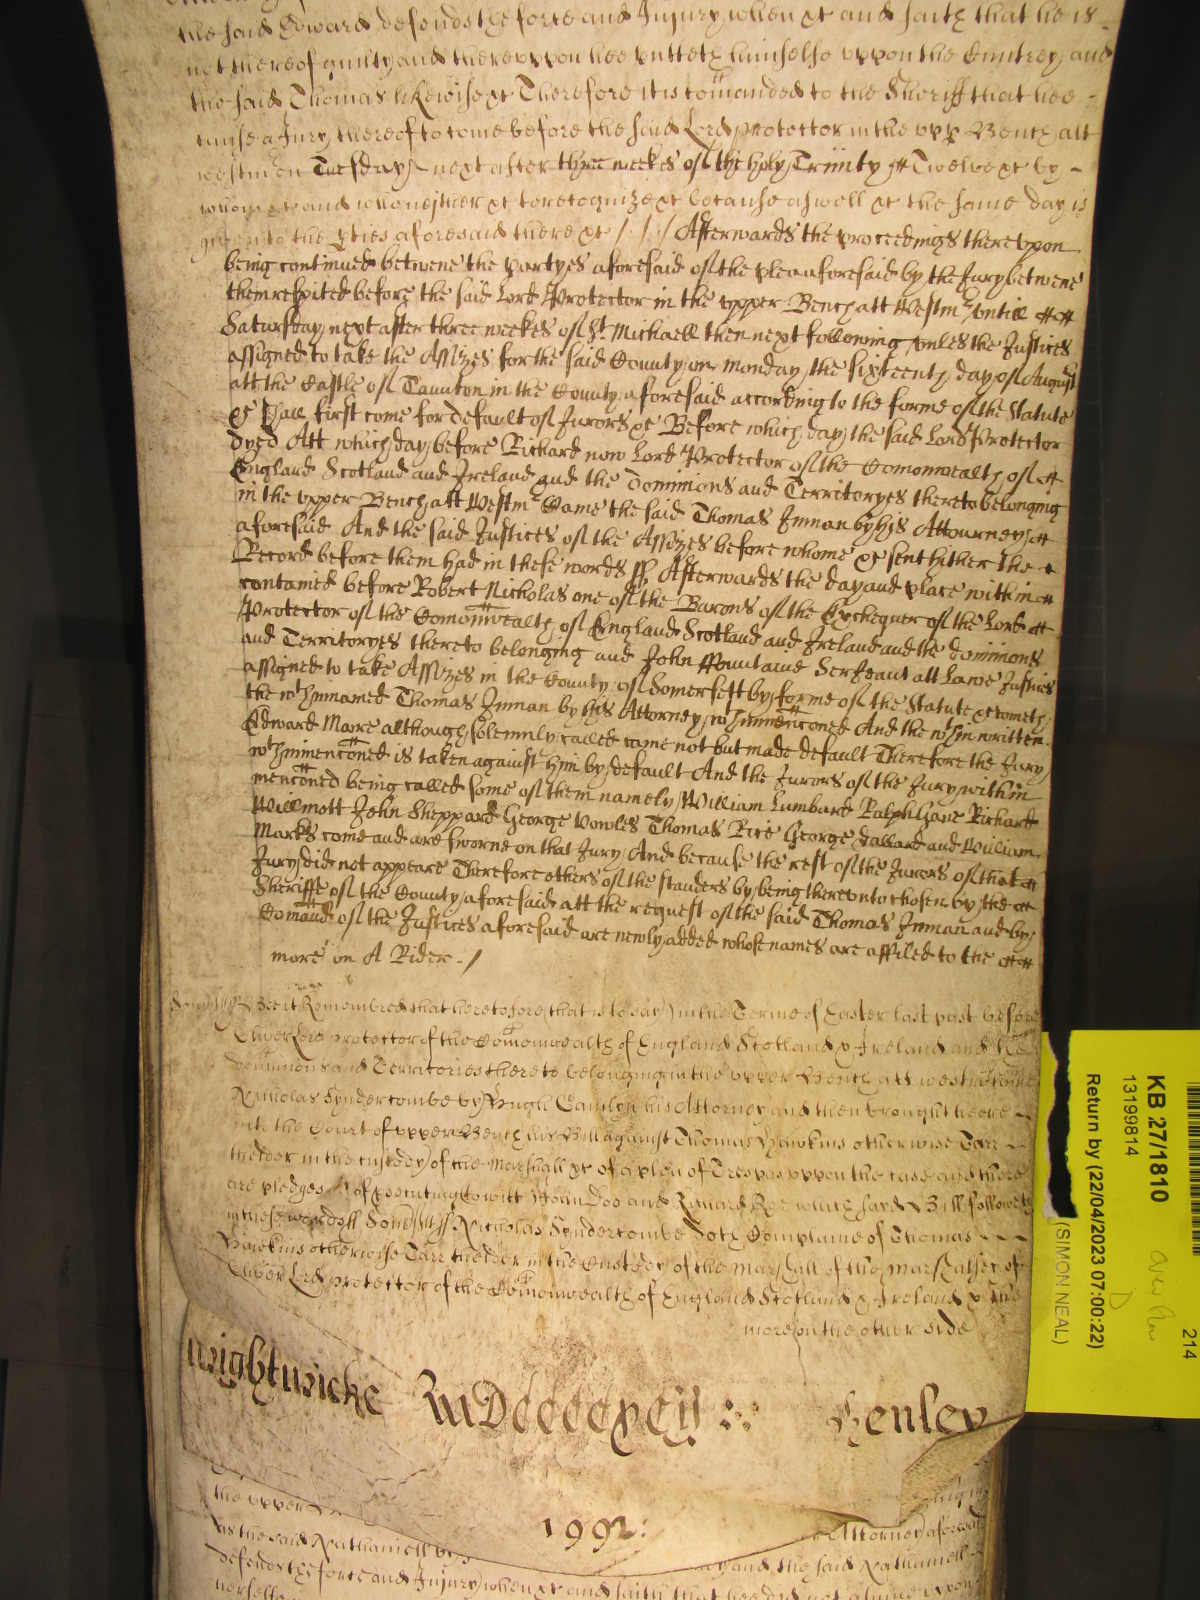 the said Edward defends the force and Injury when &c and saith that he is
not thereof guilty and thereuppon hee putteth himselfe uppon the Cuntrey and
the said Thomas likewise &c Therefore it is comanded to the Sheriff that hee
cause a Jury thereof to come before the said Lord protector in the upp Bench att
westm on Tuesday next after three weekes of the holy Trinity Twelve &c by
whom &c and who neither &c to recognize &c because aswell &c the same day is
given to the pties aforesaid there &c / / / Afterwards the proceedings thereuppon
being continued betwene the partyes aforesaid of the plea aforesaid by the Jury betwene
them respited before the said Lord Protector in the upper Bench att Westm untill
Saturday next after three weekes of St Michaell then next following unles the Justices
assigned to take the Assizes for the said County on Monday the sixteenth day of August
att the Castle of Taunton in the County aforesaid according to the forme of the Statute
&c shall first come for default of Jurors &c Before which day the said Lord Protector
dyed Att which day before Richard now Lord Protector of the Comonwealth of
England Scotland and Ireland and the Dominions and Territoryes thereto belonging
in the upper Bench att Westm Came the said Thomas Inman by his Attourney
aforesaid And the said Justices of the Assizes before whome &c sent hither the
Record before them had in these words ss Afterwards the day and place within
contained before Robert Nicholas one of the Barons of the Exchequer of the Lord
Protector of the Comonwealth of England Scotland and Ireland and the dominions
and Territoryes thereto belonging and John ffountaine Serjeant att Lawe Justices
assigned to take Assizes in the County of Somersett by forme of the Statute &c cometh
the wthinnamed Thomas Inman by his Attorney wthinmenconed And the wthin written
Edward Mare although solemnly called came not but made default Therefore the Jury
wthinmenconed is taken against him by default And the Jurors of the Jury within
menconed being called some of them namely William Lumbard Ralph Gane Richard
Willmott John Sheppard George Vowles Thomas Rice George Dallard and William
Marks come and are sworne on that Jury And because the rest of the Jurors of that
Jury did not appeare Therefore others of the standers by being thereunto chosen by the
Sheriffe of the County aforesaid att the request of the said Thomas Inman and by
Comand of the Justices aforesaid are newly added whose names are affiled to the
more on A Rider /
Som ss Bee it Remembred that heretofore (that is to say) in the Terme of Easter last past before
Oliver Lord protector of the Comonwealth of England Scotland & Ireland and the
dominions and Territories thereto belonging in the upper Bench att westm came
Nicholas Syndercombe by Hugh Camlyn his Attorney and then brought heere
into the Court of upper Bench his Bill against Thomas Hawkins otherwise Tarr
thelder in the custody of the Marshall &c of a plea of Trespas uppon the case and there
are pledges of psecuting to witt John Doo and Richard Roe which said Bill followeth
in these words ss Som ss Nicholas Syndercombe doth Complaine of Thomas
Hawkins otherwise Tarr thelder in the Custody of the Marshall of the Marshalsea of
Oliver Lord protector of the Comonwealth of England Scotland & Ireland & the
more on the other side
wightwicke
Henley
1992:
the upper
as the said Nathaniell by
Attorney aforesaid
defends the force and Injury when &c and saith that hee did not
and the said Nathaniell
KB 27/1810
13199814
Return by (22/04/2023 07:00:22)
(SIMON NEAL)
214